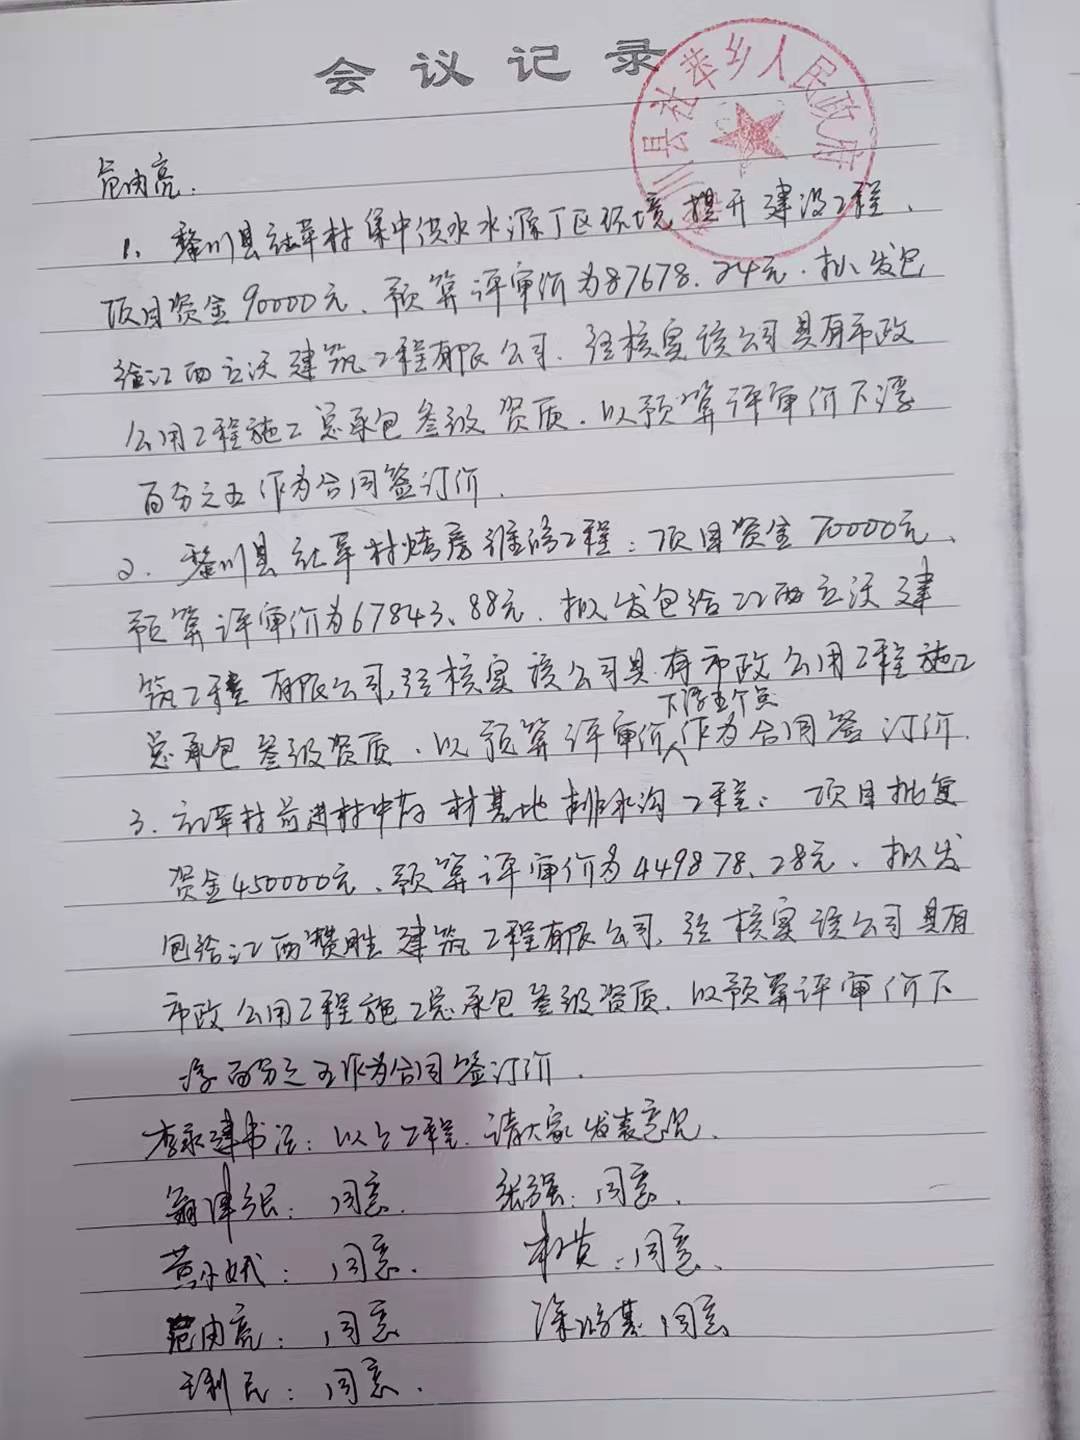 会议记录
黎川县社苹乡人民政府
范内亮.
1. 黎川县社苹村集中供水水源厂区环境提升建设工程、
项目资金90000元、预算评审价为87678.24元.拟发包
给江西立沃建筑工程有限公司.经核实该公司具有市政
公用工程施工总承包叁级资质.以预算评审价下浮
百分之五作为合同签订价.
2. 黎川县社苹村烤房维修工程:项目资金70000元、
预算评审价为67843.88元.拟发包给江西立沃建
筑工程有限公司,经核实该公司具有市政公用工程施工
总承包叁级资质.以预算评审价下浮五个点作为合同签订价.
3. 社苹村前进村中药材基地排水沟工程:项目批复
资金450000元、预算评审价为449878.28元.拟发
包给江西赞胜建筑工程有限公司,经核实该公司具有
市政公用工程施工总承包叁级资质.以预算评审价下
浮百分之五作为合同签订价.
李永建书记:以上工程.请大家发表意见.
同意. 张强:同意.
黄小娥:同意. 同意.
范内亮:同意 同意
王利民:同意.